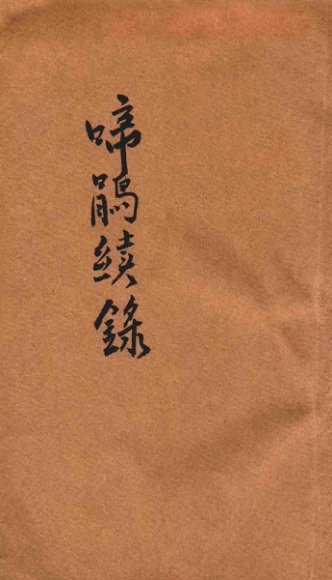 啼鵑續錄